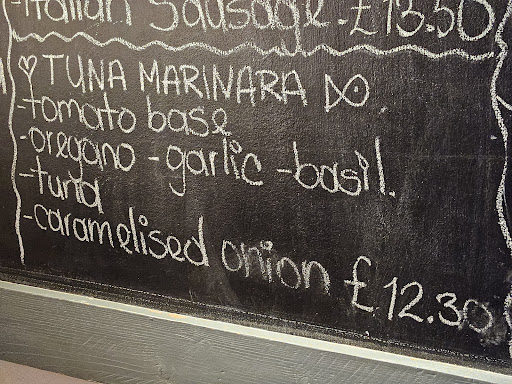 -Italian Sausage - £13.50
♡ TUNA MARINARA
-tomato base
-oregano -garlic -basil.
-tuna
-caramelised onion £12.30